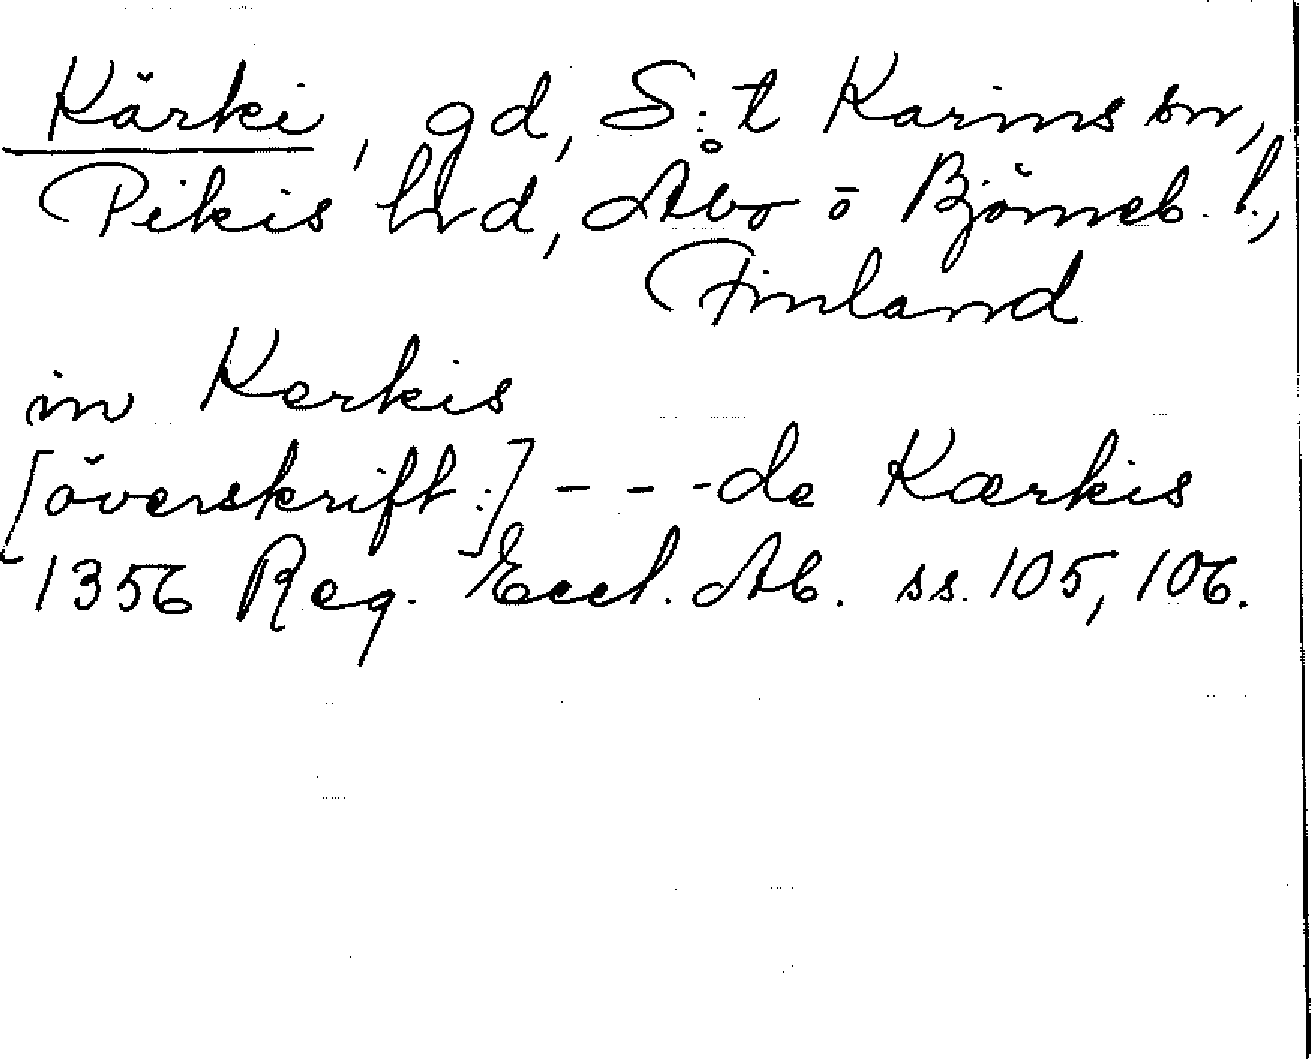 Kärki, gd, S:t Karins sn,
Pikis hrd, Åbo o Björneb. l.,
Finland
in Kerkis
[överskrift:] - - - de Kærkis
1356 Reg. Eccl. Ab. ss. 105, 106.